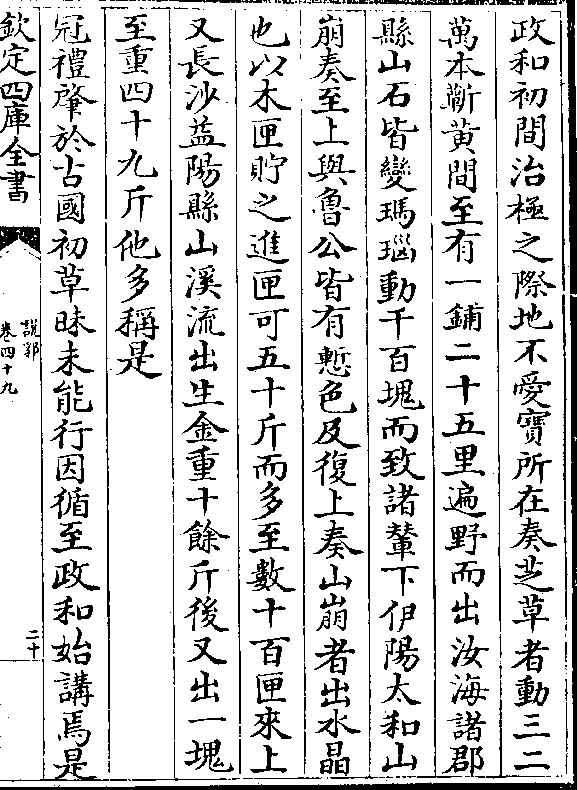 政和初間治極之際地不愛寶所在奏芝草者動三二
萬本蘄黃間至有一鋪二十五里遍野而出汝海諸郡
縣山石皆變瑪瑙動千百塊而致諸輦下伊陽太和山
崩奏至上與魯公皆有慙色及復上奏山崩者出水晶
也以木匣貯之進匣可五十斤而多至數十百匣來上
又長沙益陽縣山溪流出生金重十餘斤後又出一塊
至重四十九斤他多稱是
冠禮肇於古國初草昧未能行因循至政和始講焉是
欽定四庫全書
說郛
卷四十九
二十